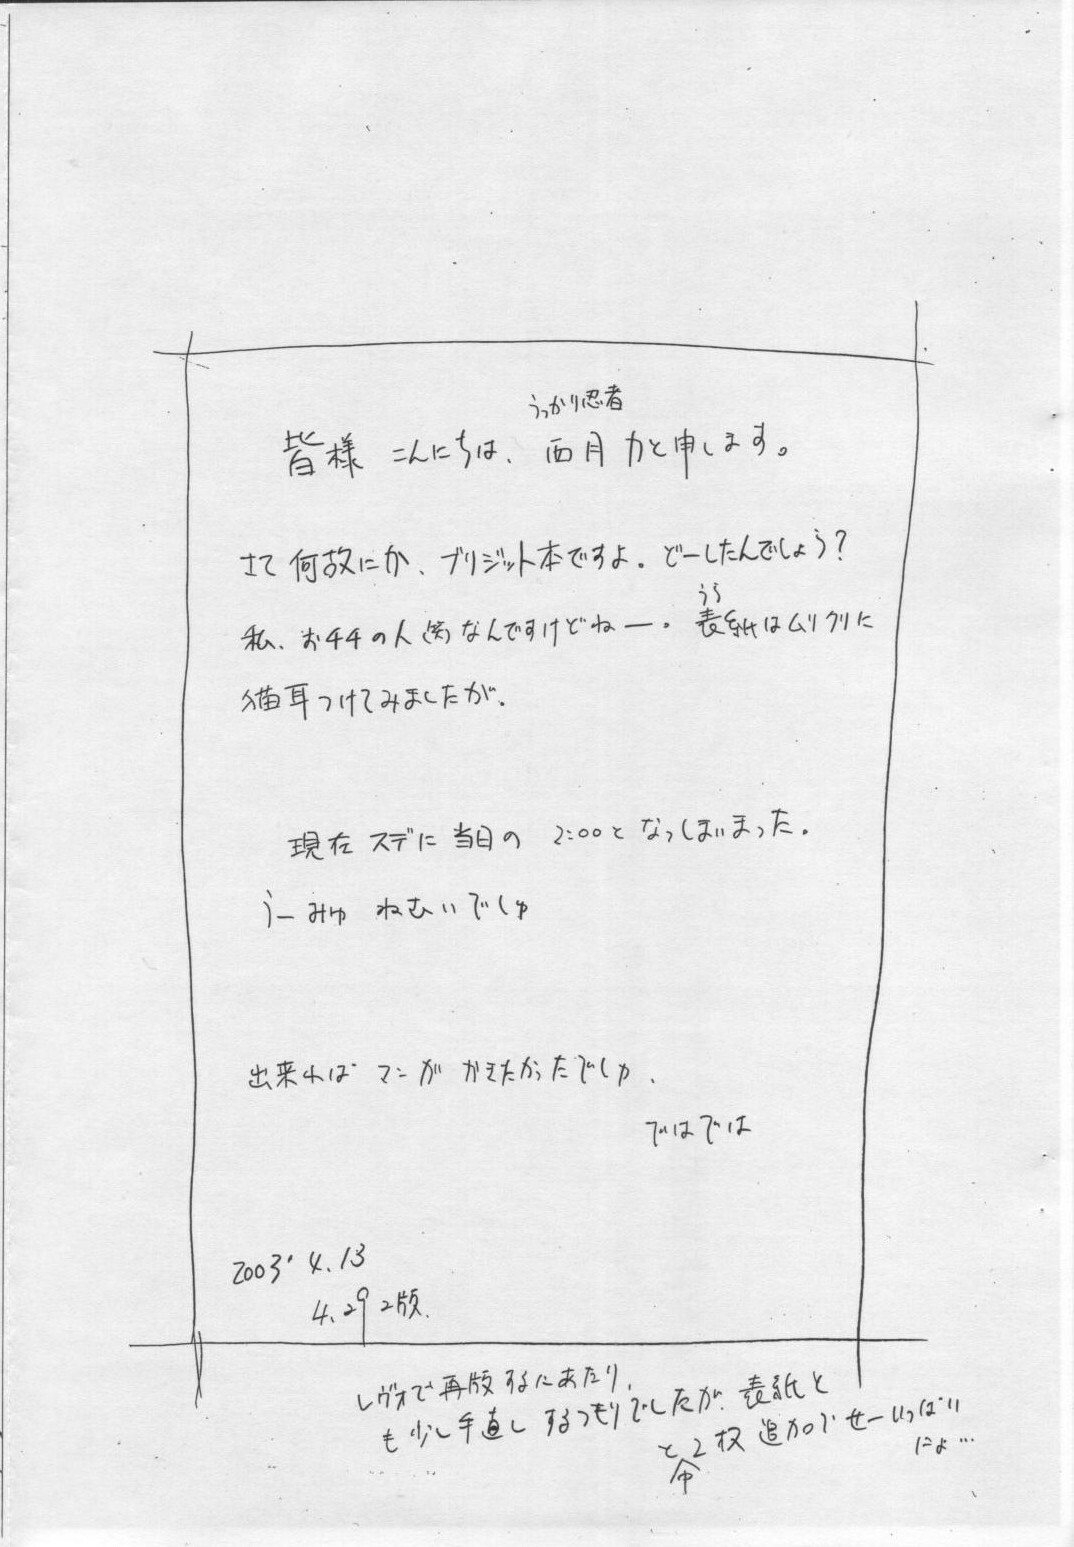 うっかり忍者
皆様 こんにちは、西月 力と申します。
さて 何故にか、ブリジット本ですよ。どーしたんでしょう?
うら
私、お千千の人(笑)なんですけどねー。表紙はムリクリに
猫耳つけてみましたが。
現在 スデに 当日の 2:00と なってしまいまった。
うーみゅ ねむいでしゅ
出来れば マンガ かきたかったでしゅ、
ではでは
2003' 4.13
4.29 2版.
レヴォで再版するにあたり、
も少し手直し するつもりでしたが、表紙と
と 2枚 追加で せーいっぱい
中
にょ…